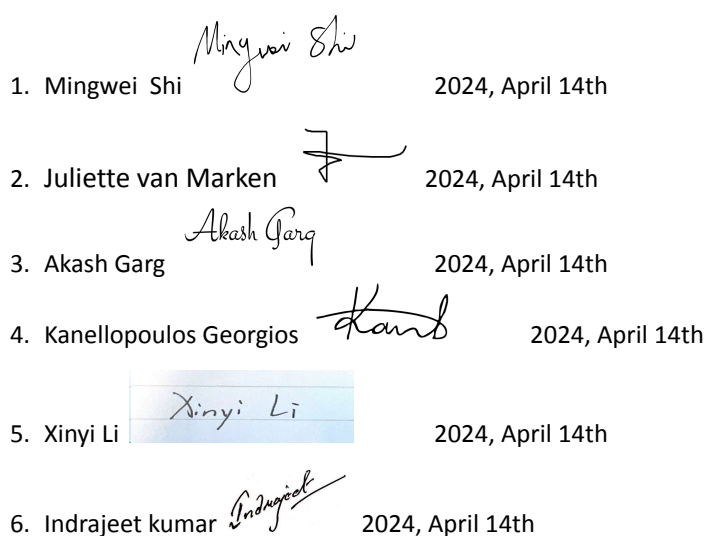 Mingwei Shi
1. Mingwei Shi 2024, April 14th
2. Juliette van Marken 2024, April 14th
Akash Garg
3. Akash Garg 2024, April 14th
4. Kanellopoulos Georgios 2024, April 14th
Xinyi Li
5. Xinyi Li 2024, April 14th
Indrajeet
6. Indrajeet kumar 2024, April 14th